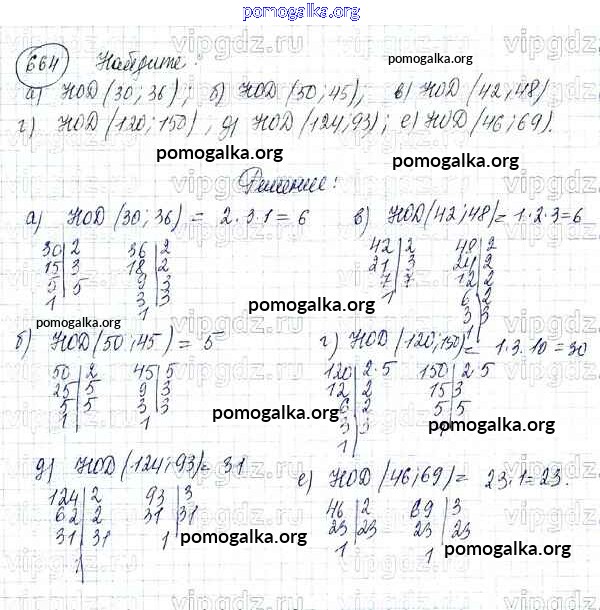 pomogalka.org
664 Найдите:
а) НОД (30; 36); б) НОД (50; 45); в) НОД (42; 48)
г) НОД (120; 150), д) НОД (124; 93); е) НОД (46; 69).
pomogalka.org
pomogalka.org
Решение:
а) НОД (30; 36) = 2·3·1 = 6
30|2 36|2
15|3 18|2
5|5 9|3
1 3|3
1
в) НОД (42; 48) = 1·2·3=6
42|2 48|2
21|3 24|2
7|7 12|2
1 6|2
3|3
1
pomogalka.org
pomogalka.org
б) НОД (50; 45) = 5
50|2 45|5
25|5 9|3
5|5 3|3
1 1
г) НОД (120; 150) = 1·3·10 = 30
120|2·5 150|2·5
12|2 15|3
6|2 5|5
3|3
1
pomogalka.org
pomogalka.org
д) НОД (124; 93) = 31
124|2 93|3
62|2 31|31
31|31 1
1
е) НОД (46; 69) = 23·1 = 23.
46|2 69|3
23|23 23|23
1 1
pomogalka.org
pomogalka.org